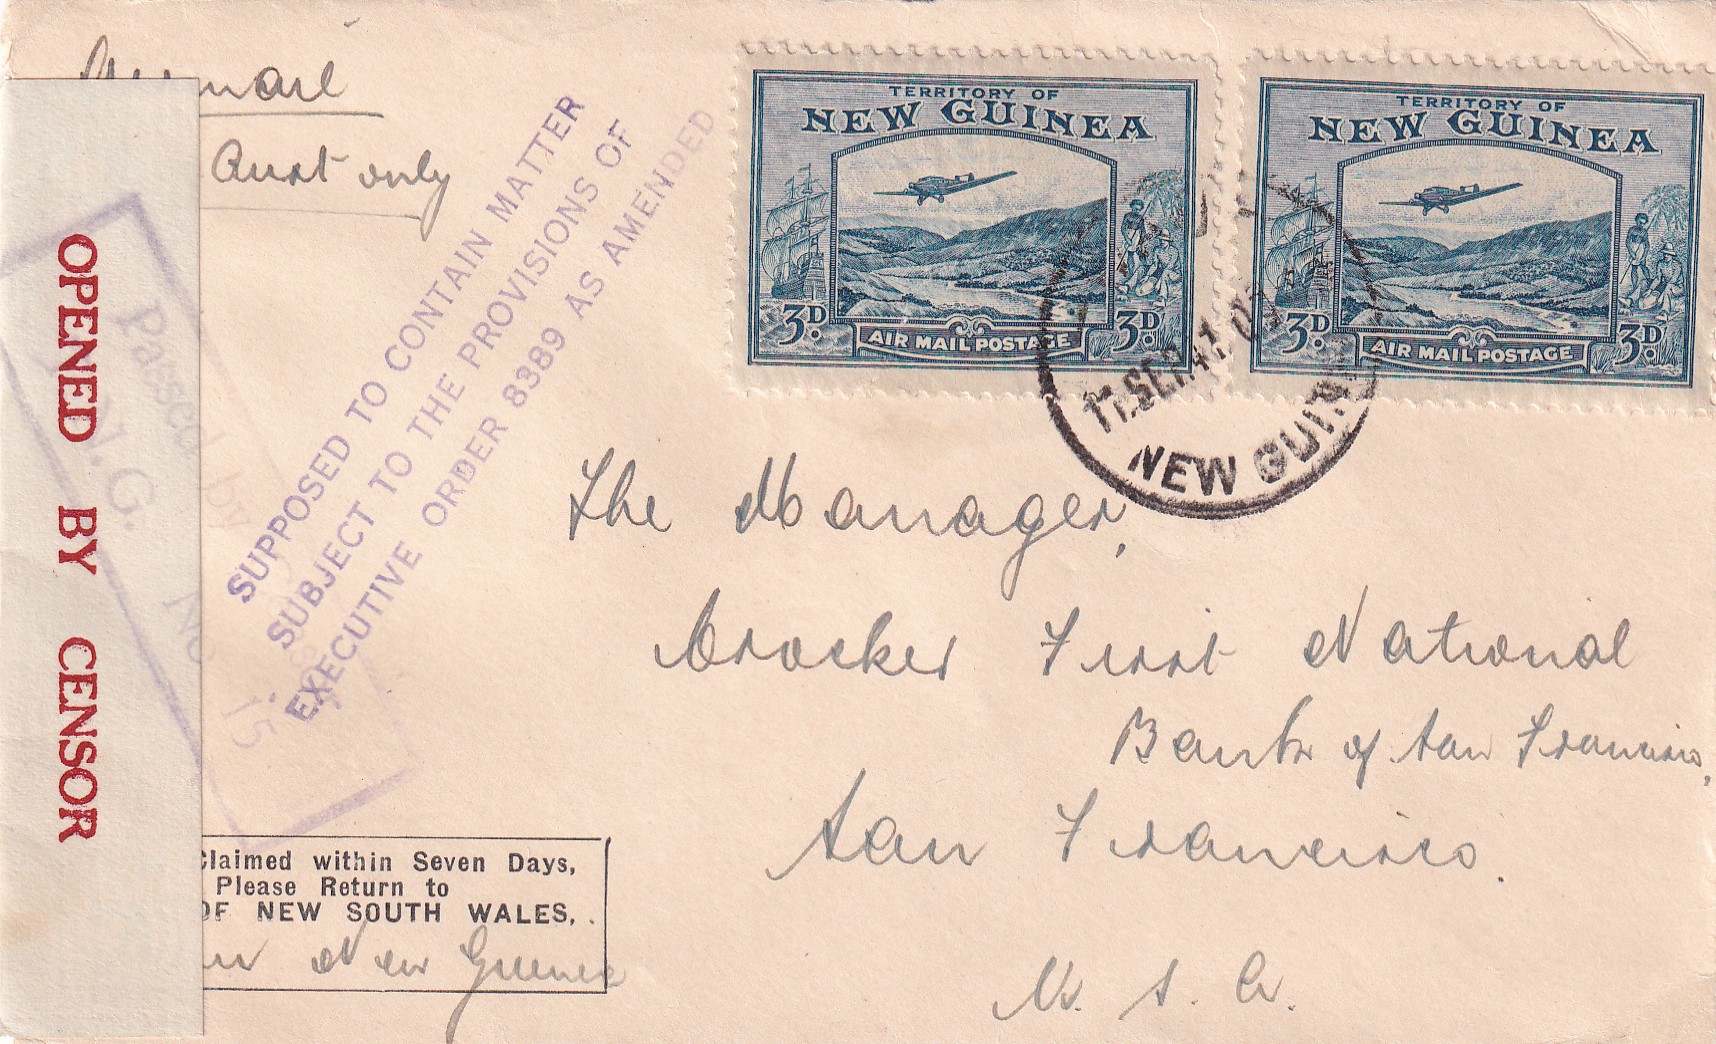 Airmail
Aust only
TERRITORY OF
NEW GUINEA
3D.
AIR MAIL POSTAGE
3D.
TERRITORY OF
NEW GUINEA
3D.
AIR MAIL POSTAGE
3D.
17.SEP.41
NEW GUIN
OPENED BY CENSOR
Passed by
N.G.
No 15
SUPPOSED TO CONTAIN MATTER
SUBJECT TO THE PROVISIONS OF
EXECUTIVE ORDER 8389 AS AMENDED
The Manager,
Crocker First National
Bank of San Francisco,
San Francisco.
U. S. A.
Claimed within Seven Days,
Please Return to
OF NEW SOUTH WALES,
New Guinea